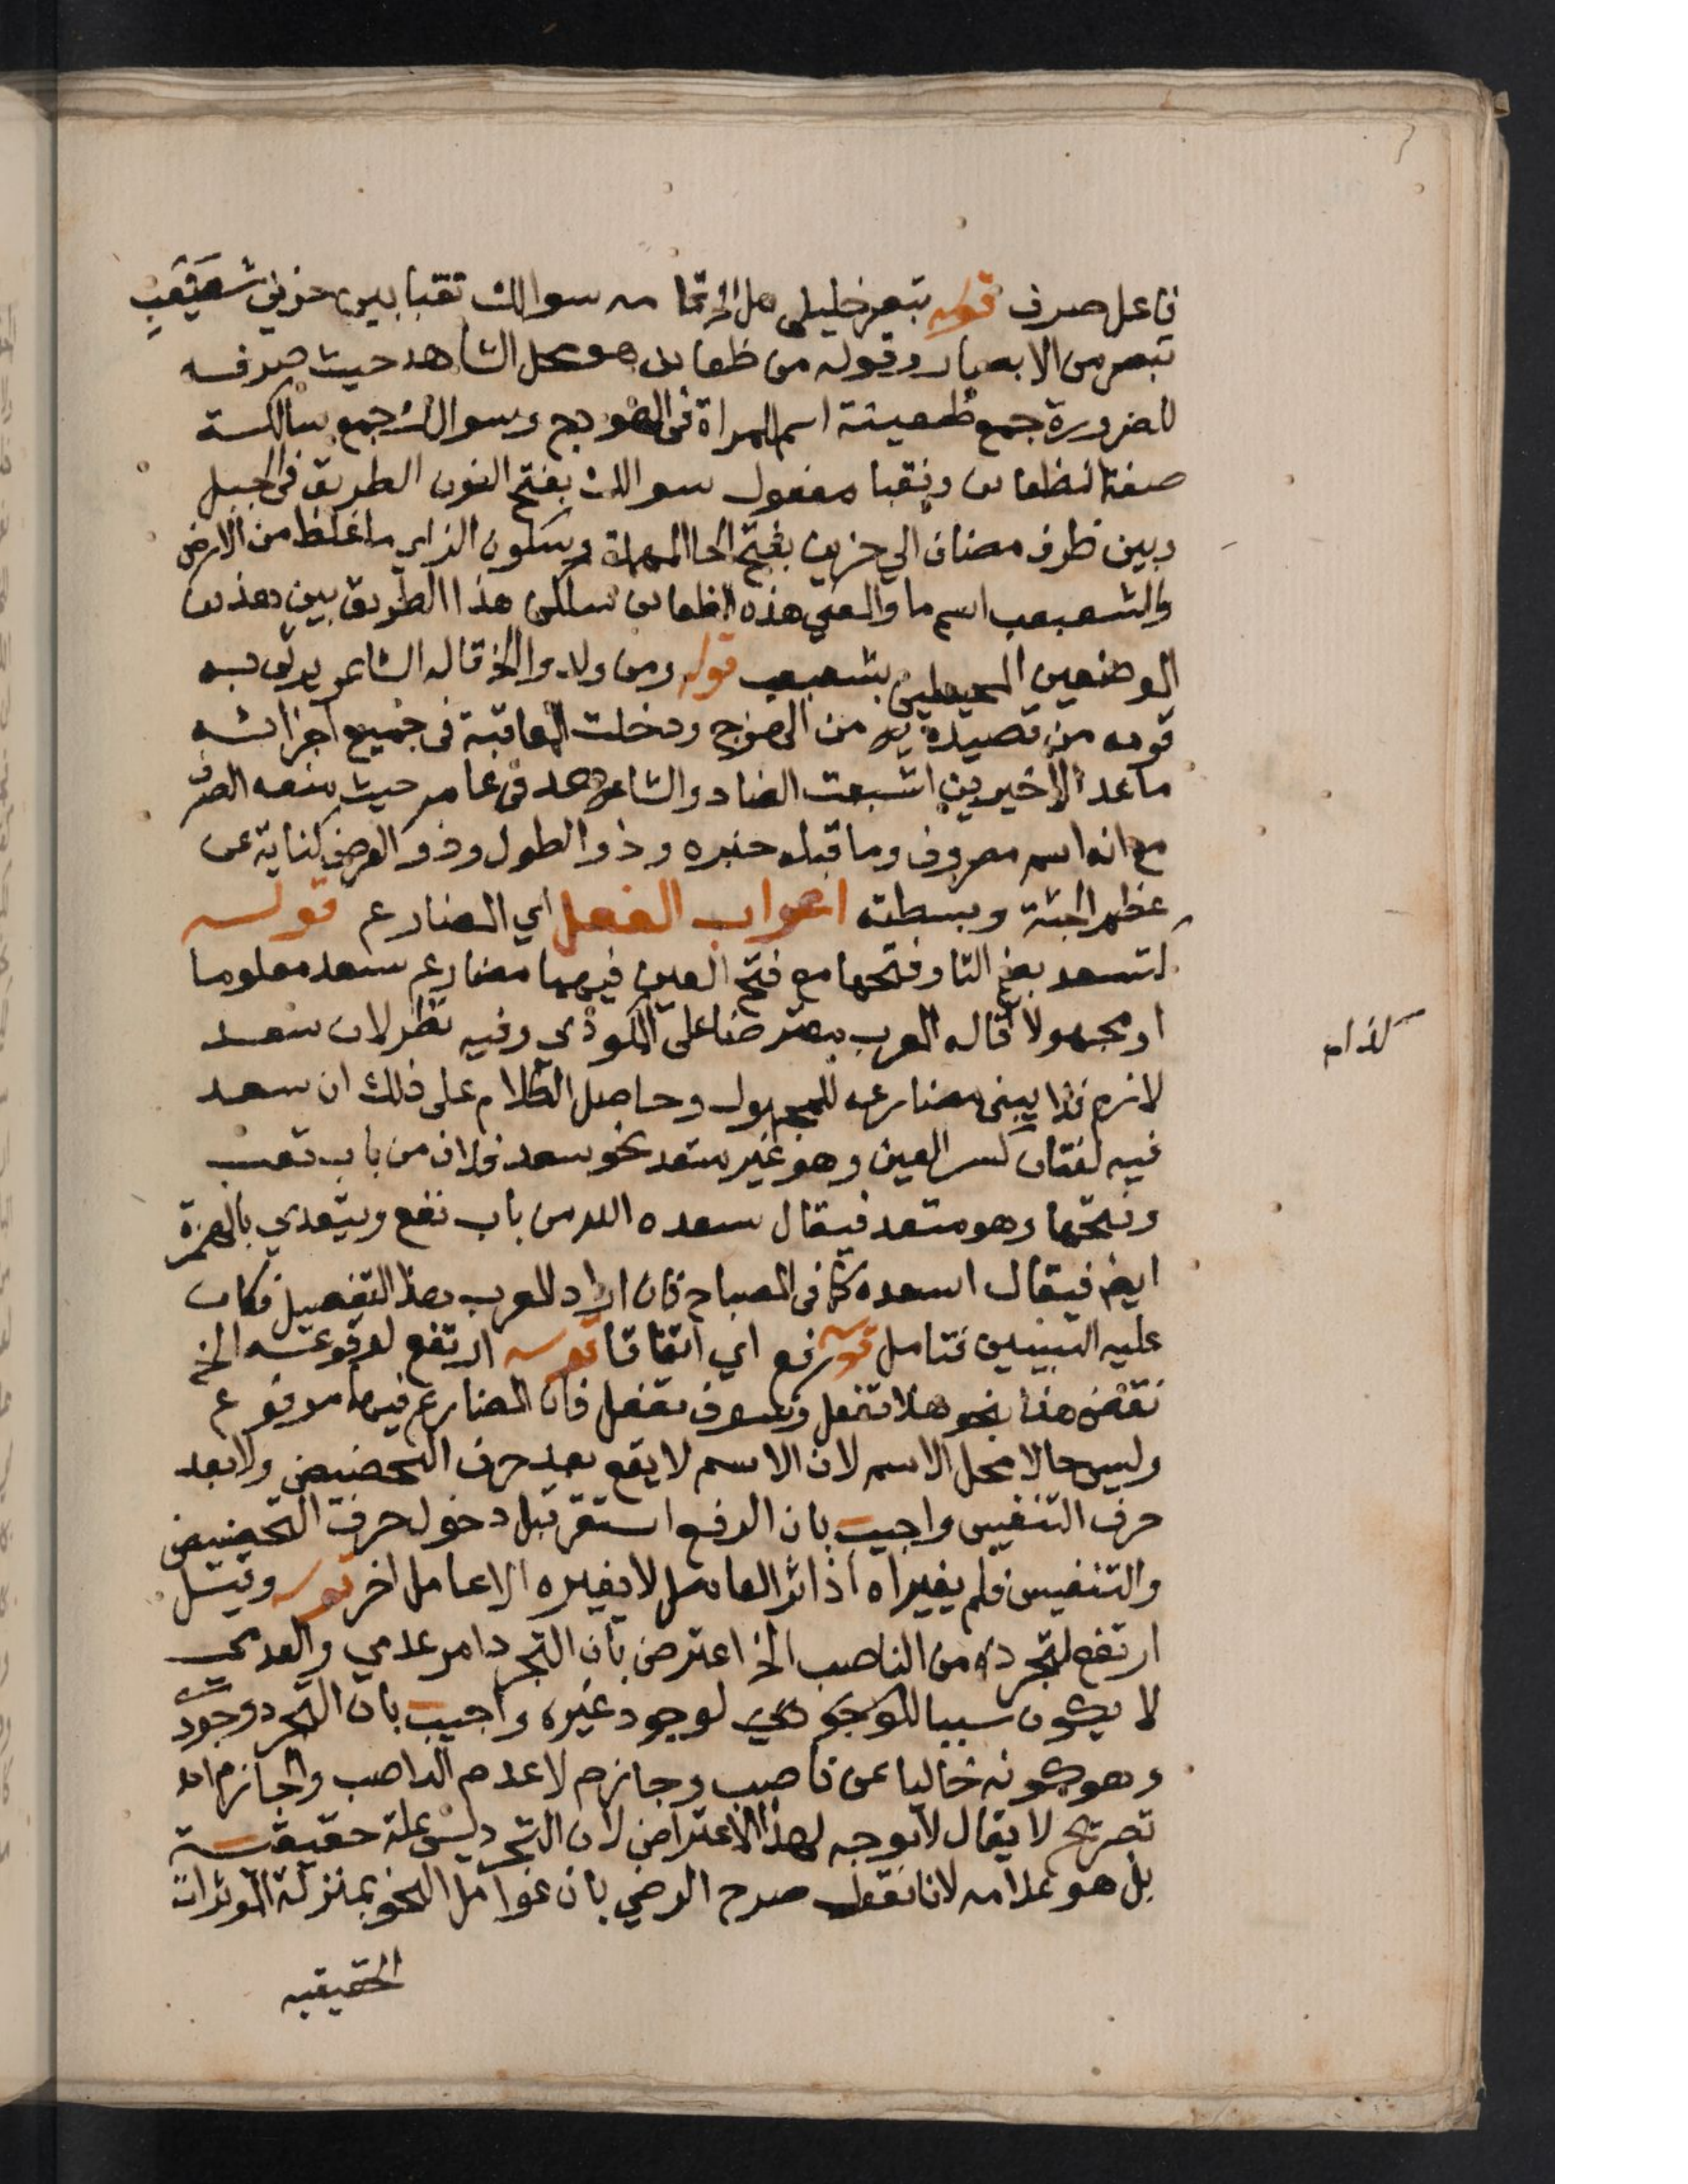 فاعل صرف قوله تبصر خليلي هل الخ تمامه سوالك نقبا بين حزني شعبعب
تبصر من الابصار وقوله من ظعاين هو محل الشاهد حيث صرفه
للضرورة جمع ظعينة اسم المراة في الهودج وسوالك جمع سالكة
صفة لظعاين ونقبا مفعول سوالك بفتح النون الطريق في الجبل
وبين ظرف مضاف الي حزين بفتح الحا المهملة وسكون الزاي ما غلظ من الارض
والشعبعب اسم ما والمعني هذه الظعاين سالكن هذا الطريق بين هذين
الموضعين المحيطين بشعبعب قوله ومن ولدوا الخ قاله الشاعر يرثي به
قومه من قصيدة من الهزج ودخلت المعاقبة في جميع اجزائه
ما عدا الاخيرين اشبعت الضاد والشاهد في عامر حيث منعه الصرف
مع انه اسم مصروف وما قبله خبره وذو الطول وذو العرض كناية عن
عظم الجثة وبسطته اعراب الفعل اي المضارع قوله
لتسعد بضم التا وفتحها مع فتح العين فيهما مضارع سعد معلوما
او مجهولا قاله المعرب معترضا على المكودي وفيه نظر لان سعد
لازم فلا يبنى مضارعه للمجهول وحاصل الكلام على ذلك ان سعد
فيه لغتان كسر العين وهو غير متعد نحو سعد فلان من باب تعب
وفتحها وهو متعد فيقال سعده الله من باب نفع ويتعدي بالهمزة
ايضا فيقال اسعده كما في المصباح فان اراد المعرب هذا التفصيل فكان
عليه التبيين فتامل قوله رفع اي اتفاقا قوله ارتفع لوقوعه الخ
نقض هذا بنحو هلا تفعل وسوف تفعل فان المضارع فيهما مرفوع
وليس حالا محل الاسم لان الاسم لا يقع بعد حرف التحضيض ولا بعد
حرف التنفيس واجيب بان الرفع استقر قبل دخول حرف التحضيض
والتنفيس فلم يغيراه اذ اثر العامل لا يغيره الا عامل اخر قوله وقيل
ارتفع لتجرده من الناصب الخ اعترض بان التجرد امر عدمي والعدمي
لا يكون سببا للوجودي لوجود غيره واجيب بان التجرد وجودي
وهو كونه خاليا عن ناصب وجازم لا عدم الناصب والجازم اه
تصريح لا يقال لا توجه لهذا الاعتراض لان التجرد ليس علة حقيقية
بل هو علامه لانا نقول صرح الرضي بان عوامل النحو بمنزلة الموثرات
الحقيقيه